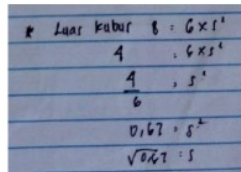 * Luas kubus 8 = 6 x s²
4 = 6 x s²
4/6 = s²
0,67 = s²
√0,67 = s